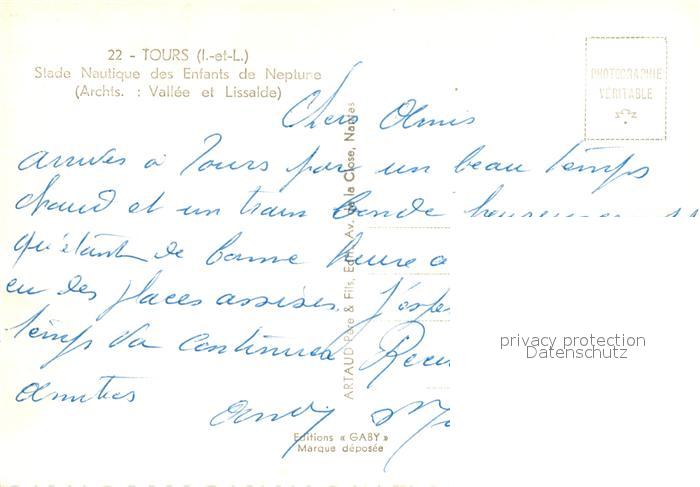 22 - TOURS (I.-et-L.)
Stade Nautique des Enfants de Neptune
(Archts. : Vallée et Lissalde)
PHOTOGRAPHIE
VÉRITABLE
Chers Amis
arrivés à Tours par un beau temps
chaud et un train bondé
qu'étant de bonne heure a
eu des places assises, J'espè
temps va continuer Rece
amitiés
ARTAUD Père & Fils, Edit., Av. de la Close, Nantes
Editions « GABY »
Marque déposée
privacy protection
Datenschutz